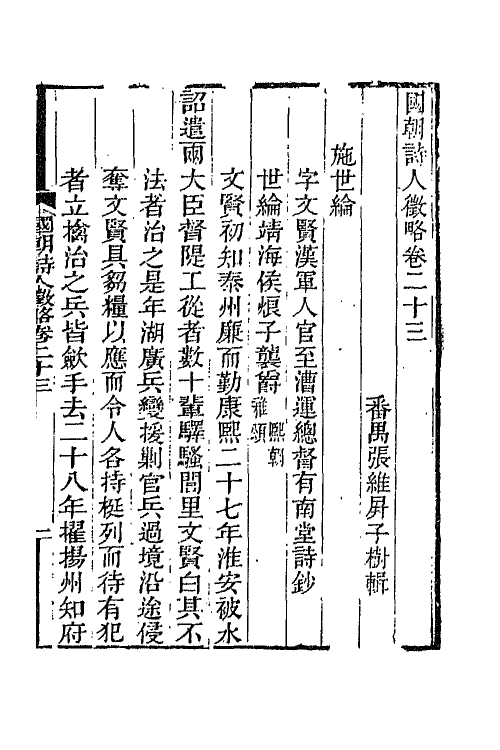 國朝詩人徵略卷二十三
番禺張維屏子樹輯
施世綸
字文賢漢軍人官至漕運總督有南堂詩鈔
世綸靖海侯烺子襲爵熙朝雅頌
文賢初知泰州廉而勤康熙二十七年淮安被水
詔遣兩大臣督隄工從者數十輩驛騷閭里文賢白其不
法者治之是年湖廣兵變援剿官兵過境沿途侵
奪文賢具芻糧以應而令人各持梃列而待有犯
者立擒治之兵皆歛手去二十八年擢揚州知府
國朝詩人徵略卷二十三
一